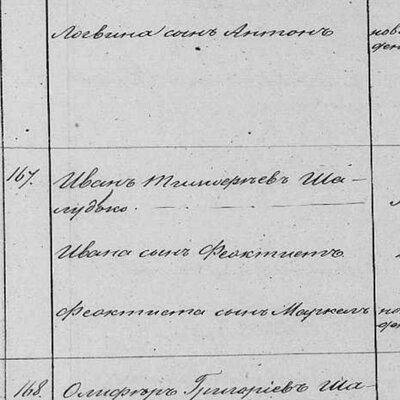 Логвина сынъ Антонъ
167. Иванъ Тимоѳеѣвъ Ша-
лудько.
Ивана сынъ Ѳеоктистъ
Ѳеоктиста сынъ Маркелъ
168. Олиферъ Григоріевъ Ша-